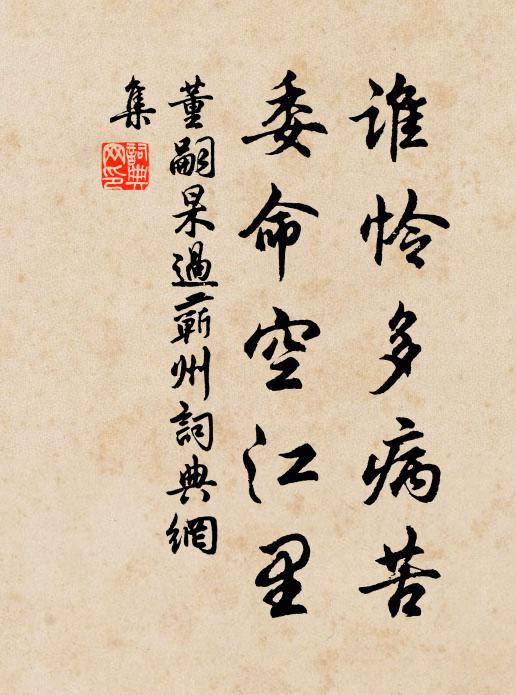 谁怜多病苦
委命空江里
董嗣杲過蘄州詞典網
集
詞典
网印